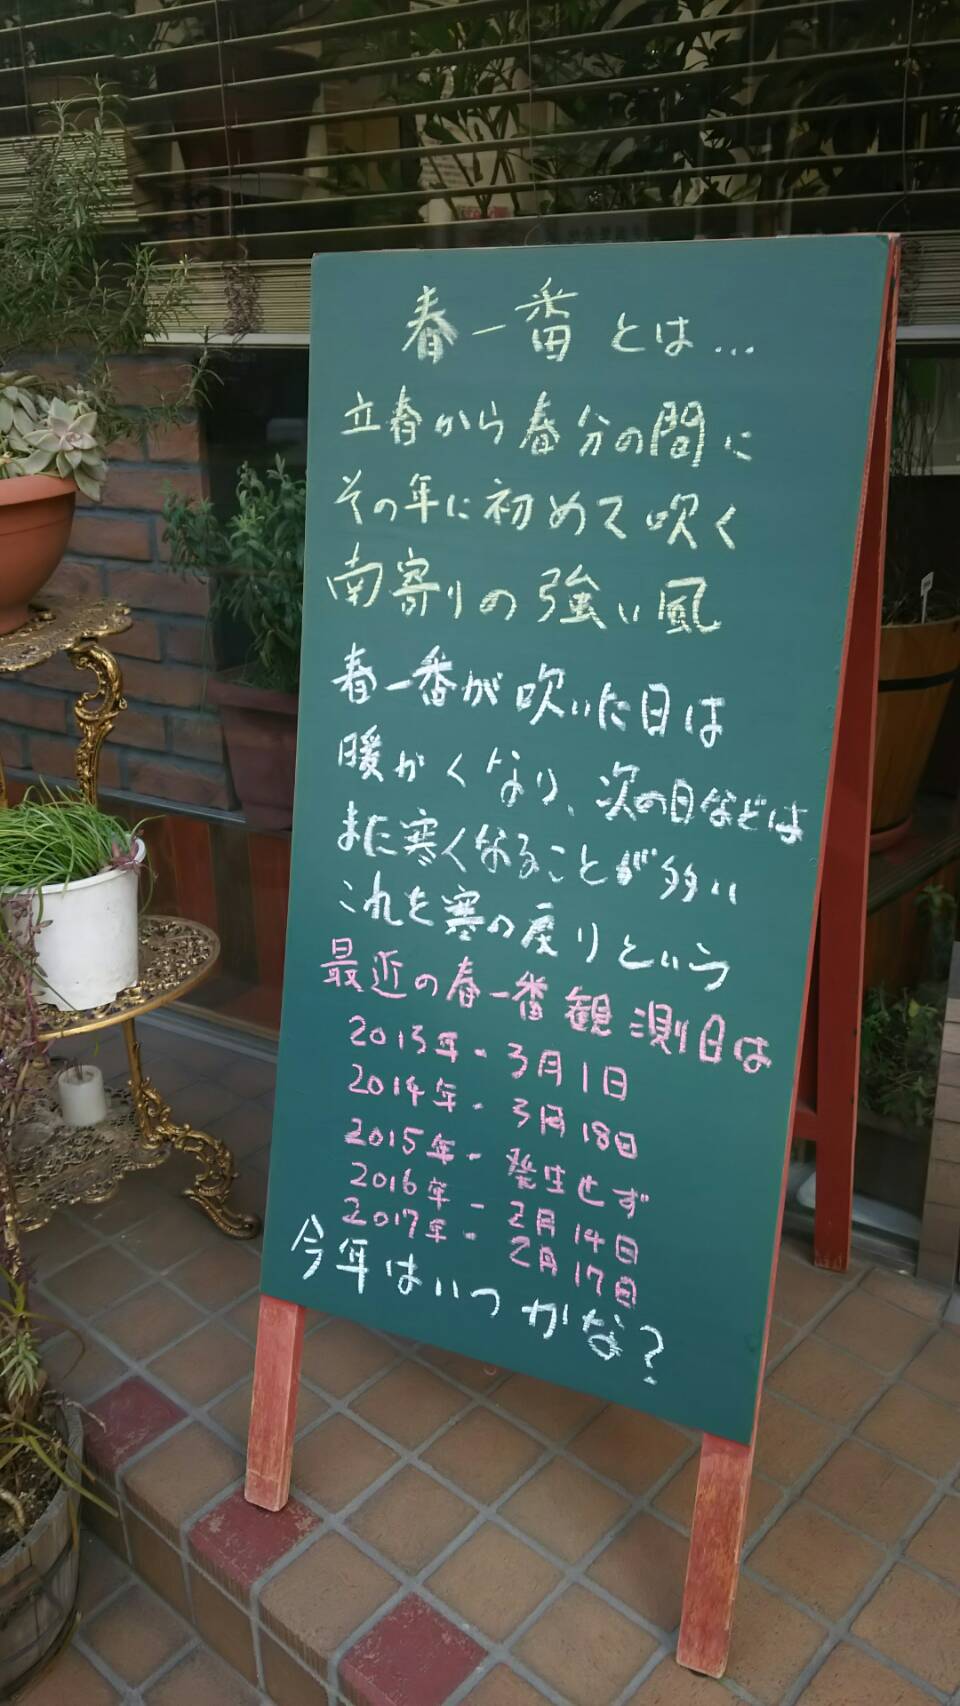 春一番とは…
立春から春分の間に
その年に初めて吹く
南寄りの強い風
春一番が吹いた日は
暖かくなり、次の日などは
また寒くなることが多い
これを寒の戻りという
最近の春一番観測日は
2013年-3月1日
2014年-3月18日
2015年-発生せず
2016年-2月14日
2017年-2月17日
今年はいつかな?